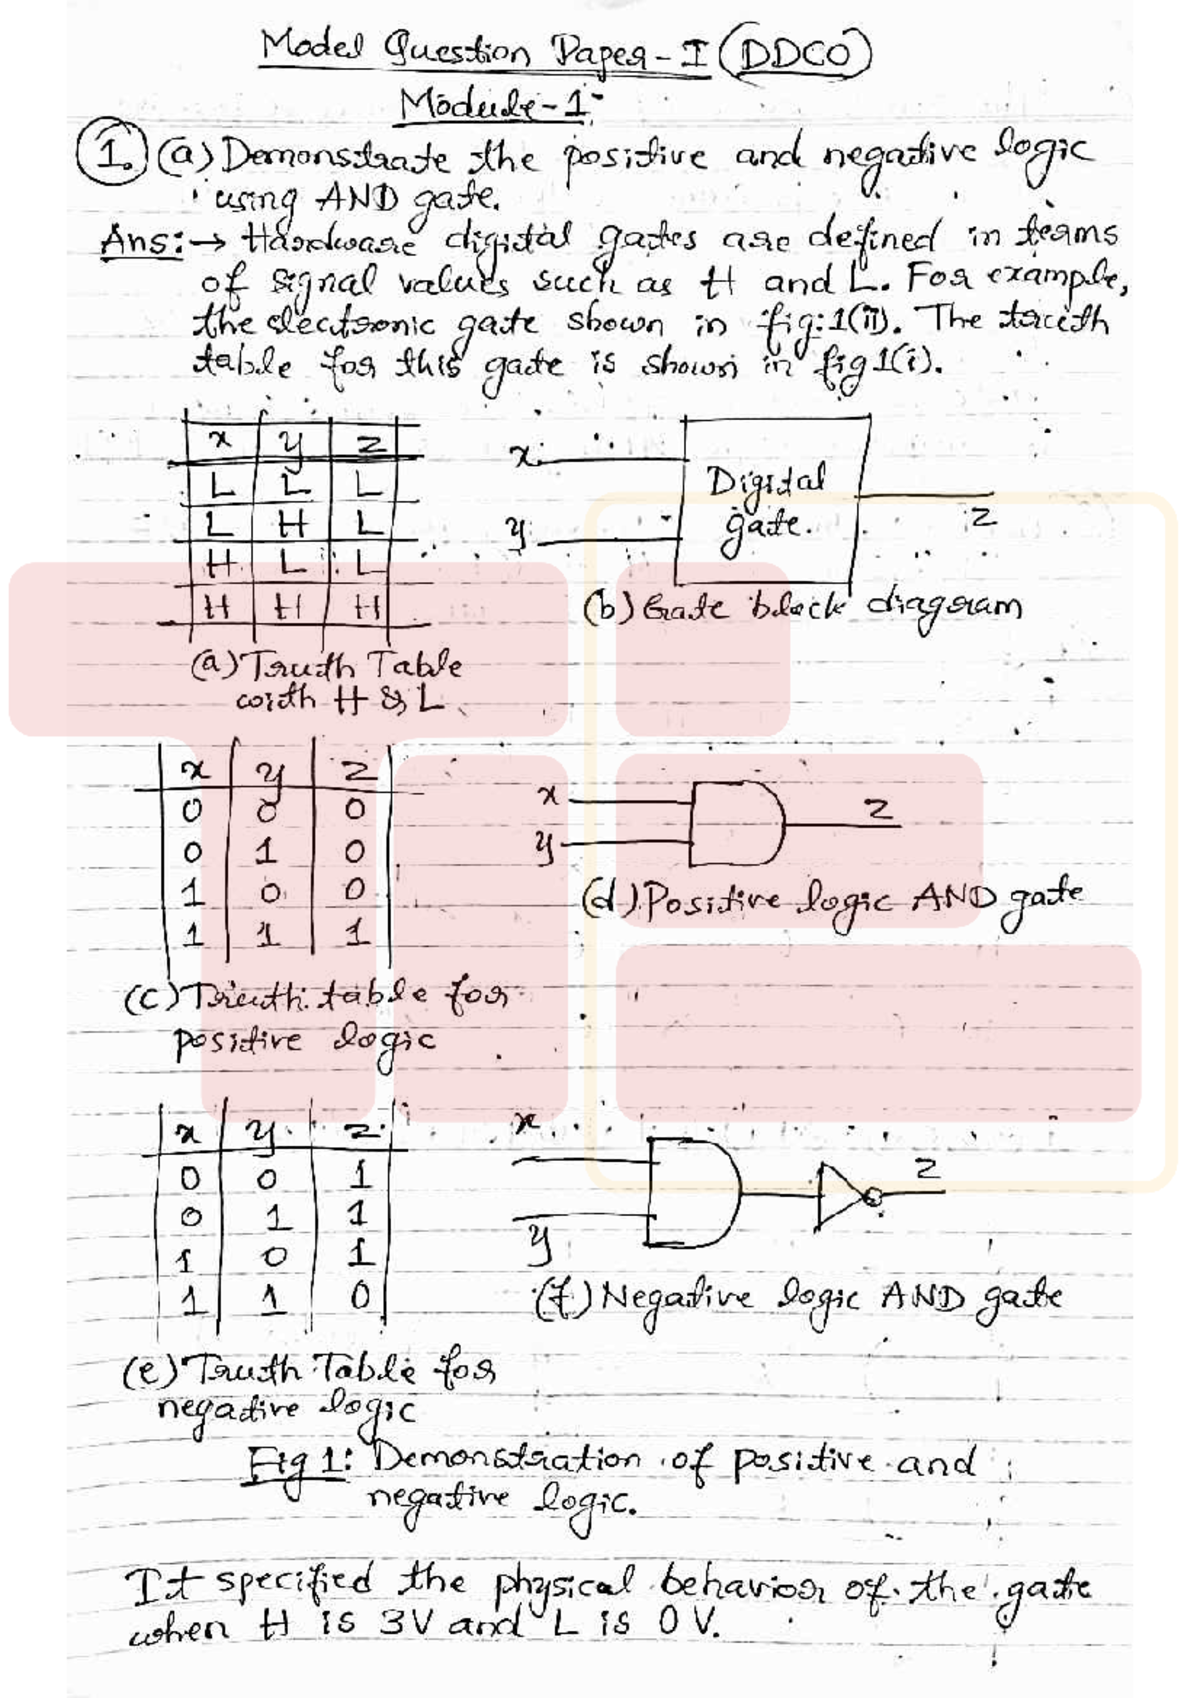 Model Question Paper-I (DDCO)
Module-1
1. (a) Demonstrate the positive and negative logic
using AND gate.
Ans:→ Hardware digital gates are defined in terms
of signal values such as H and L. For example,
the electronic gate shown in fig:1(ii). The truth
table for this gate is shown in fig 1(i).
x y z
L L L
L H L
H L L
H H H
(a) Truth Table
with H & L
x
y
Digital
gate.
z
(b) Gate block diagram
x y z
0 0 0
0 1 0
1 0 0
1 1 1
(c) Truth table for
positive logic
x
y
z
(d) Positive logic AND gate
x y z
0 0 1
0 1 1
1 0 1
1 1 0
(e) Truth Table for
negative logic
x
y
z
(f) Negative logic AND gate
Fig 1: Demonstration of positive and
negative logic.
It specified the physical behavior of the gate
when H is 3V and L is 0V.